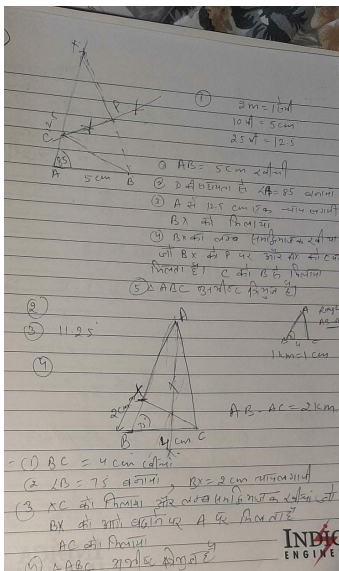 ①
2m = 1सेमी
10 मी = 5cm
25 मी = 12.5
X
P
C
85
A
5cm
B
① AB = 5cm खींची
② D की सहायता से ∠A = 85 बनाया
③ A से 12.5 cm का चाप लगाया
BX को मिलाया
④ BX का लम्ब समद्विभाजक खींचा
जो BX को P पर और AX को C पर
मिलता है। C को B से मिलाया
⑤ △ABC अभीष्ट त्रिभुज है
②
③ 11.25
④
A
X
2cm
75
B
4cm
C
A
B
4
C
1km = 1cm
AB - AC = 2km
① BC = 4cm खींचा
② ∠B = 75 बनाया, BX = 2cm चाप लगाया
③ XC को मिलाया और लम्ब समद्विभाजक खींचा जो
BX को आगे बढ़ाने पर A पर मिलता है
AC को मिलाया
△ABC अभीष्ट त्रिभुज है
INDI
ENGINE